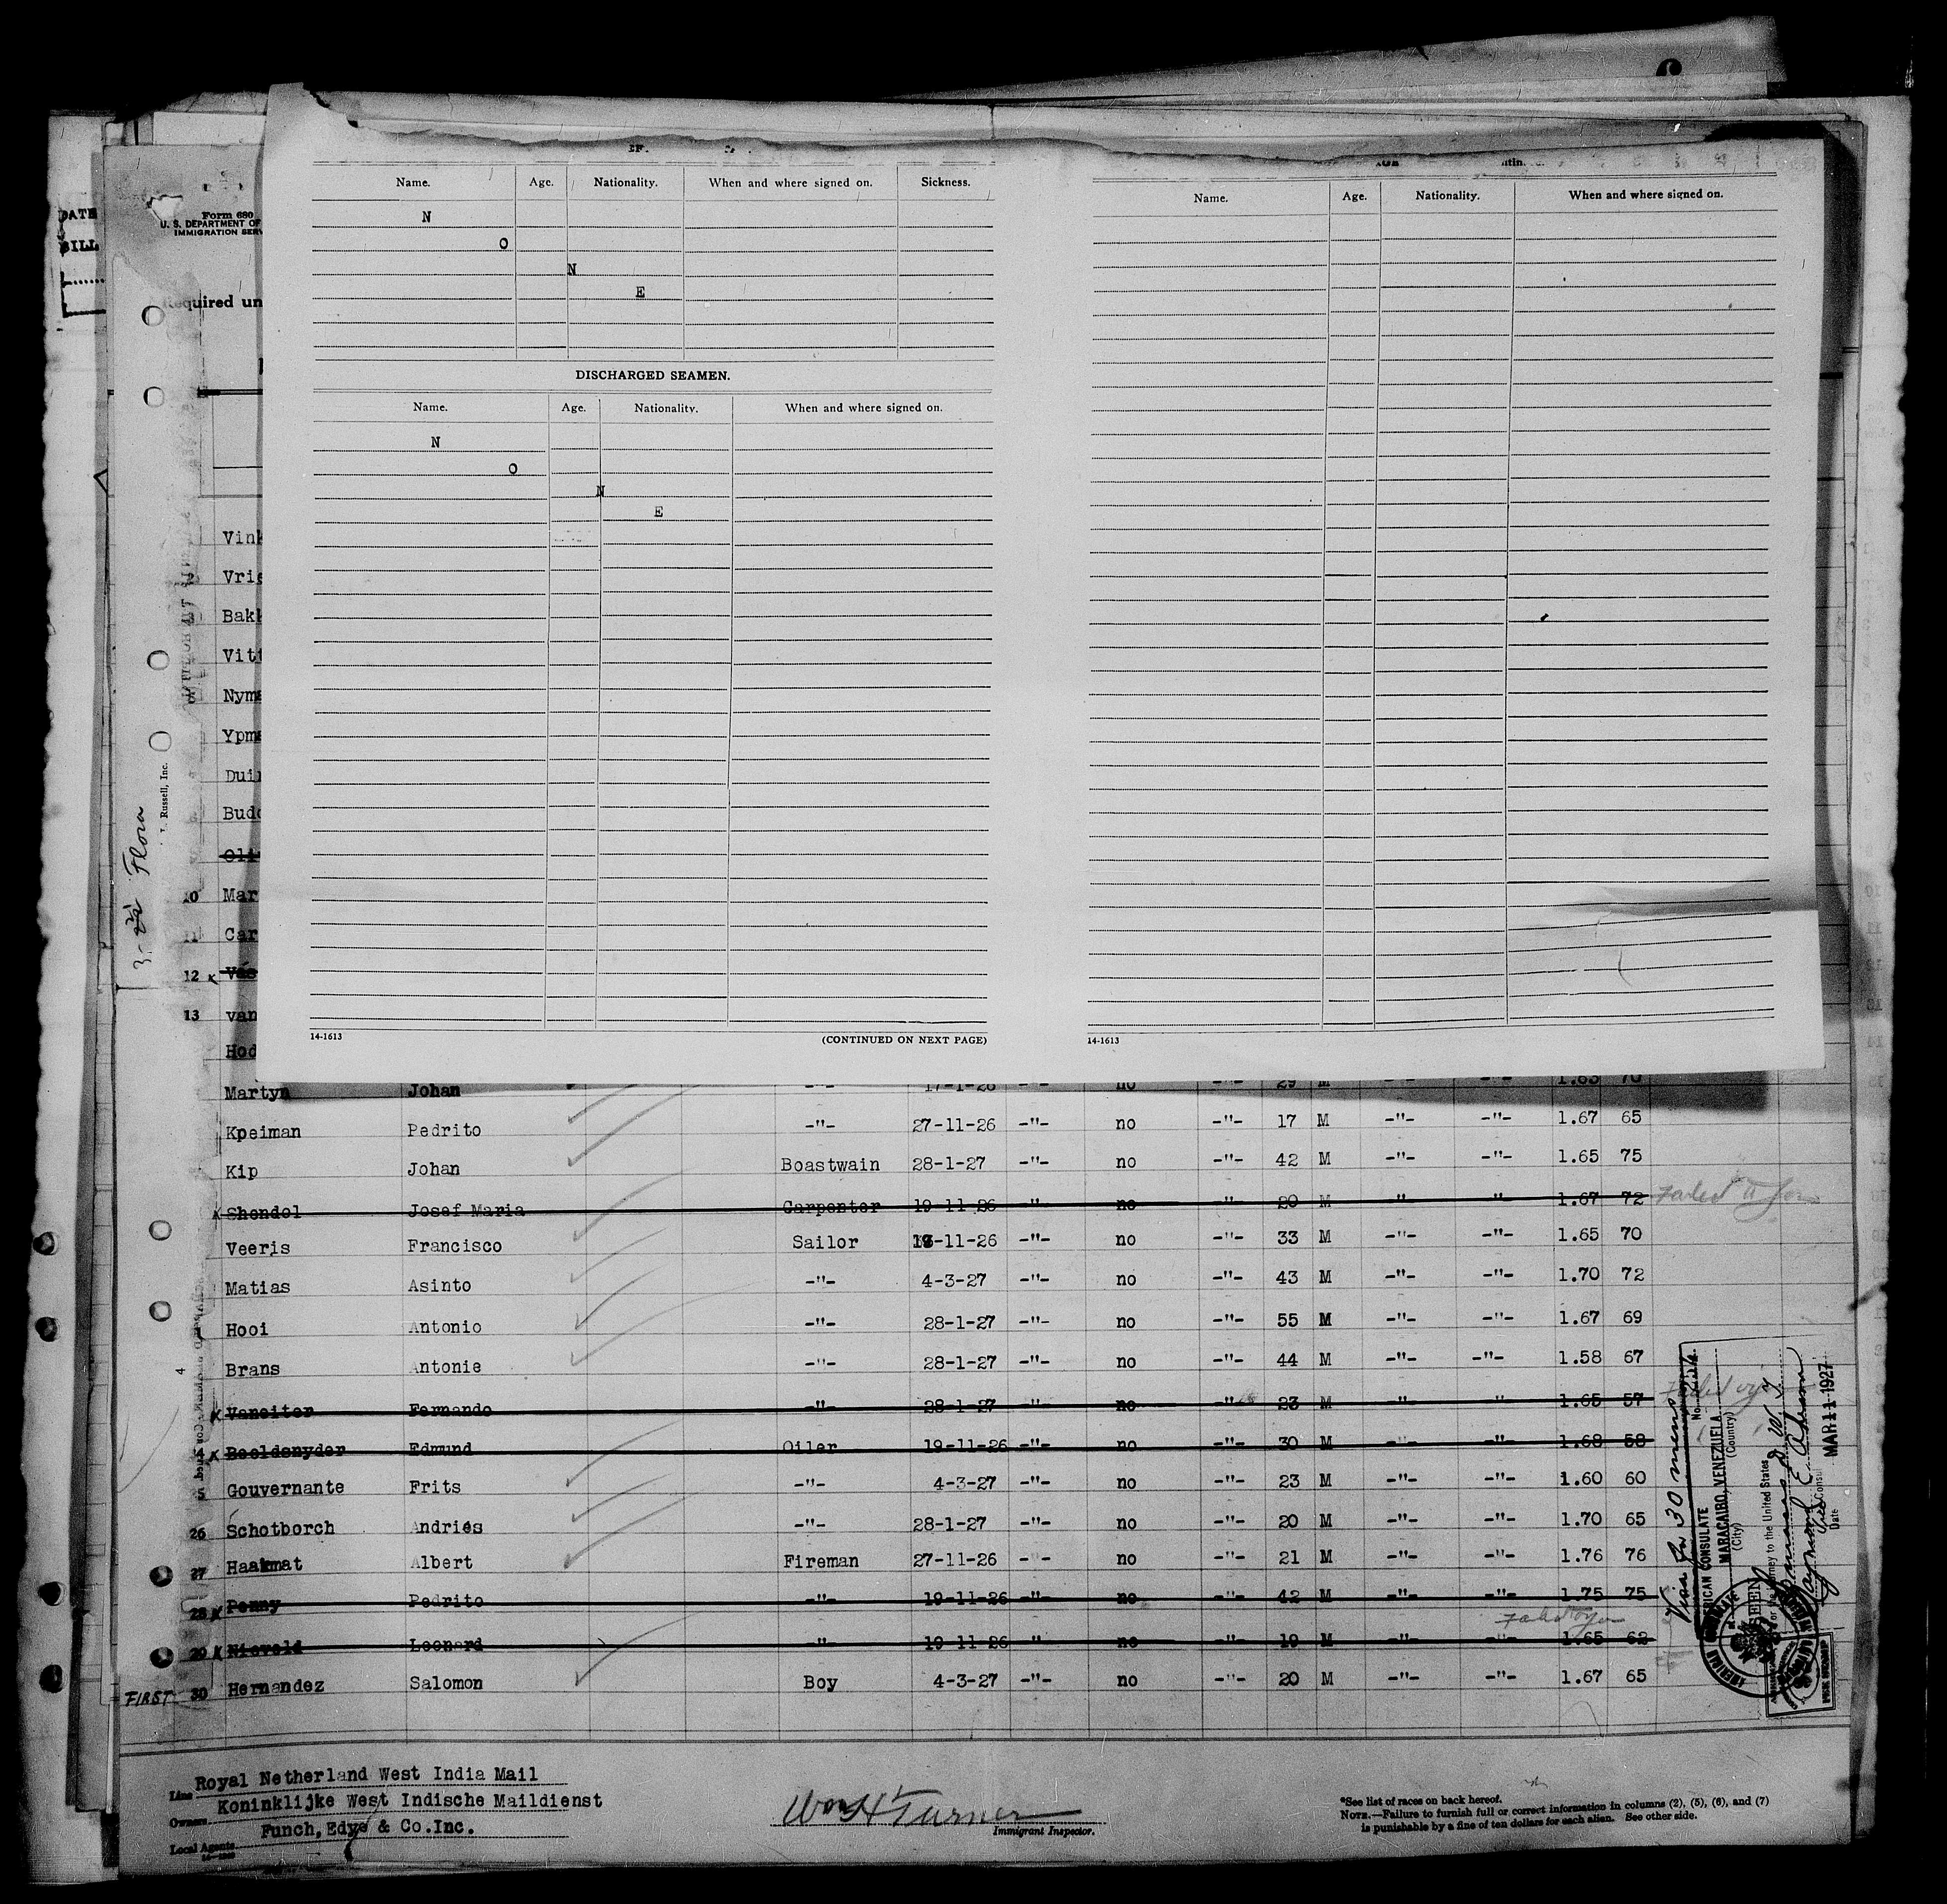 DATE
BILL
Form 680
U. S. DEPARTMENT OF
IMMIGRATION SERV
Required un
Name. Age. Nationality. When and where signed on. Sickness.
N
O
N
E
DISCHARGED SEAMEN.
Name. Age. Nationality. When and where signed on.
N
O
N
E
14-1613 (CONTINUED ON NEXT PAGE)
Name. Age. Nationality. When and where signed on.
14-1613
Russell, Inc.
Flora
Vink
Vrie
Bakk
Vitt
Nyma
Ypma
Duin
Budd
Oli
10 Mar
11 Car
12 x Vas
13 van
Hod
Martyn Johan -"- 17-1-26 -"- no -"- 29 M -"- -"- 1.63 70
Kpeiman Pedrito -"- 27-11-26 -"- no -"- 17 M -"- -"- 1.67 65
Kip Johan Boastwain 28-1-27 -"- no -"- 42 M -"- -"- 1.65 75
x Shendel Josef Maria Carpenter 19-11-26 -"- no -"- 20 M -"- -"- 1.67 72 Failed to join
Veeris Francisco Sailor 19-11-26 -"- no -"- 33 M -"- -"- 1.65 70
Matias Asinto -"- 4-3-27 -"- no -"- 43 M -"- -"- 1.70 72
Hooi Antonio -"- 28-1-27 -"- no -"- 55 M -"- -"- 1.67 69
Brans Antonie -"- 28-1-27 -"- no -"- 44 M -"- -"- 1.58 67
x Vanciter Fernando -"- 28-1-27 -"- no -"- 23 M -"- -"- 1.65 57
24 x Beeldsnyder Edmund Oiler 19-11-26 -"- no -"- 30 M -"- -"- 1.68 58
5 Gouvernante Frits -"- 4-3-27 -"- no -"- 23 M -"- -"- 1.60 60
26 Schotborch Andries -"- 28-1-27 -"- no -"- 20 M -"- -"- 1.70 65
27 Haakmat Albert Fireman 27-11-26 -"- no -"- 21 M -"- -"- 1.76 76
28 x Penny Pedrito -"- 19-11-26 -"- no -"- 42 M -"- -"- 1.75 75
29 x Nieveld Leonard -"- 19-11-26 -"- no -"- 19 M -"- -"- 1.65 62
FIRST 30 Hernandez Salomon -"- Boy 4-3-27 -"- no -"- 20 M -"- -"- 1.67 65
AMERICAN CONSULATE
No.
MARACAIBO, VENEZUELA
(City) (Country)
SEEN
For the journey to the United States
Date MAR 11 1927
FEE STAMP
Line Royal Netherland West India Mail
Owners Koninklijke West Indische Maildienst
Local Agents Funch, Edye & Co.Inc.
Wm H Turner
Immigrant Inspector.
*See list of races on back hereof.
NOTE.—Failure to furnish full or correct information in columns (2), (5), (6), and (7)
is punishable by a fine of ten dollars for each alien. See other side.